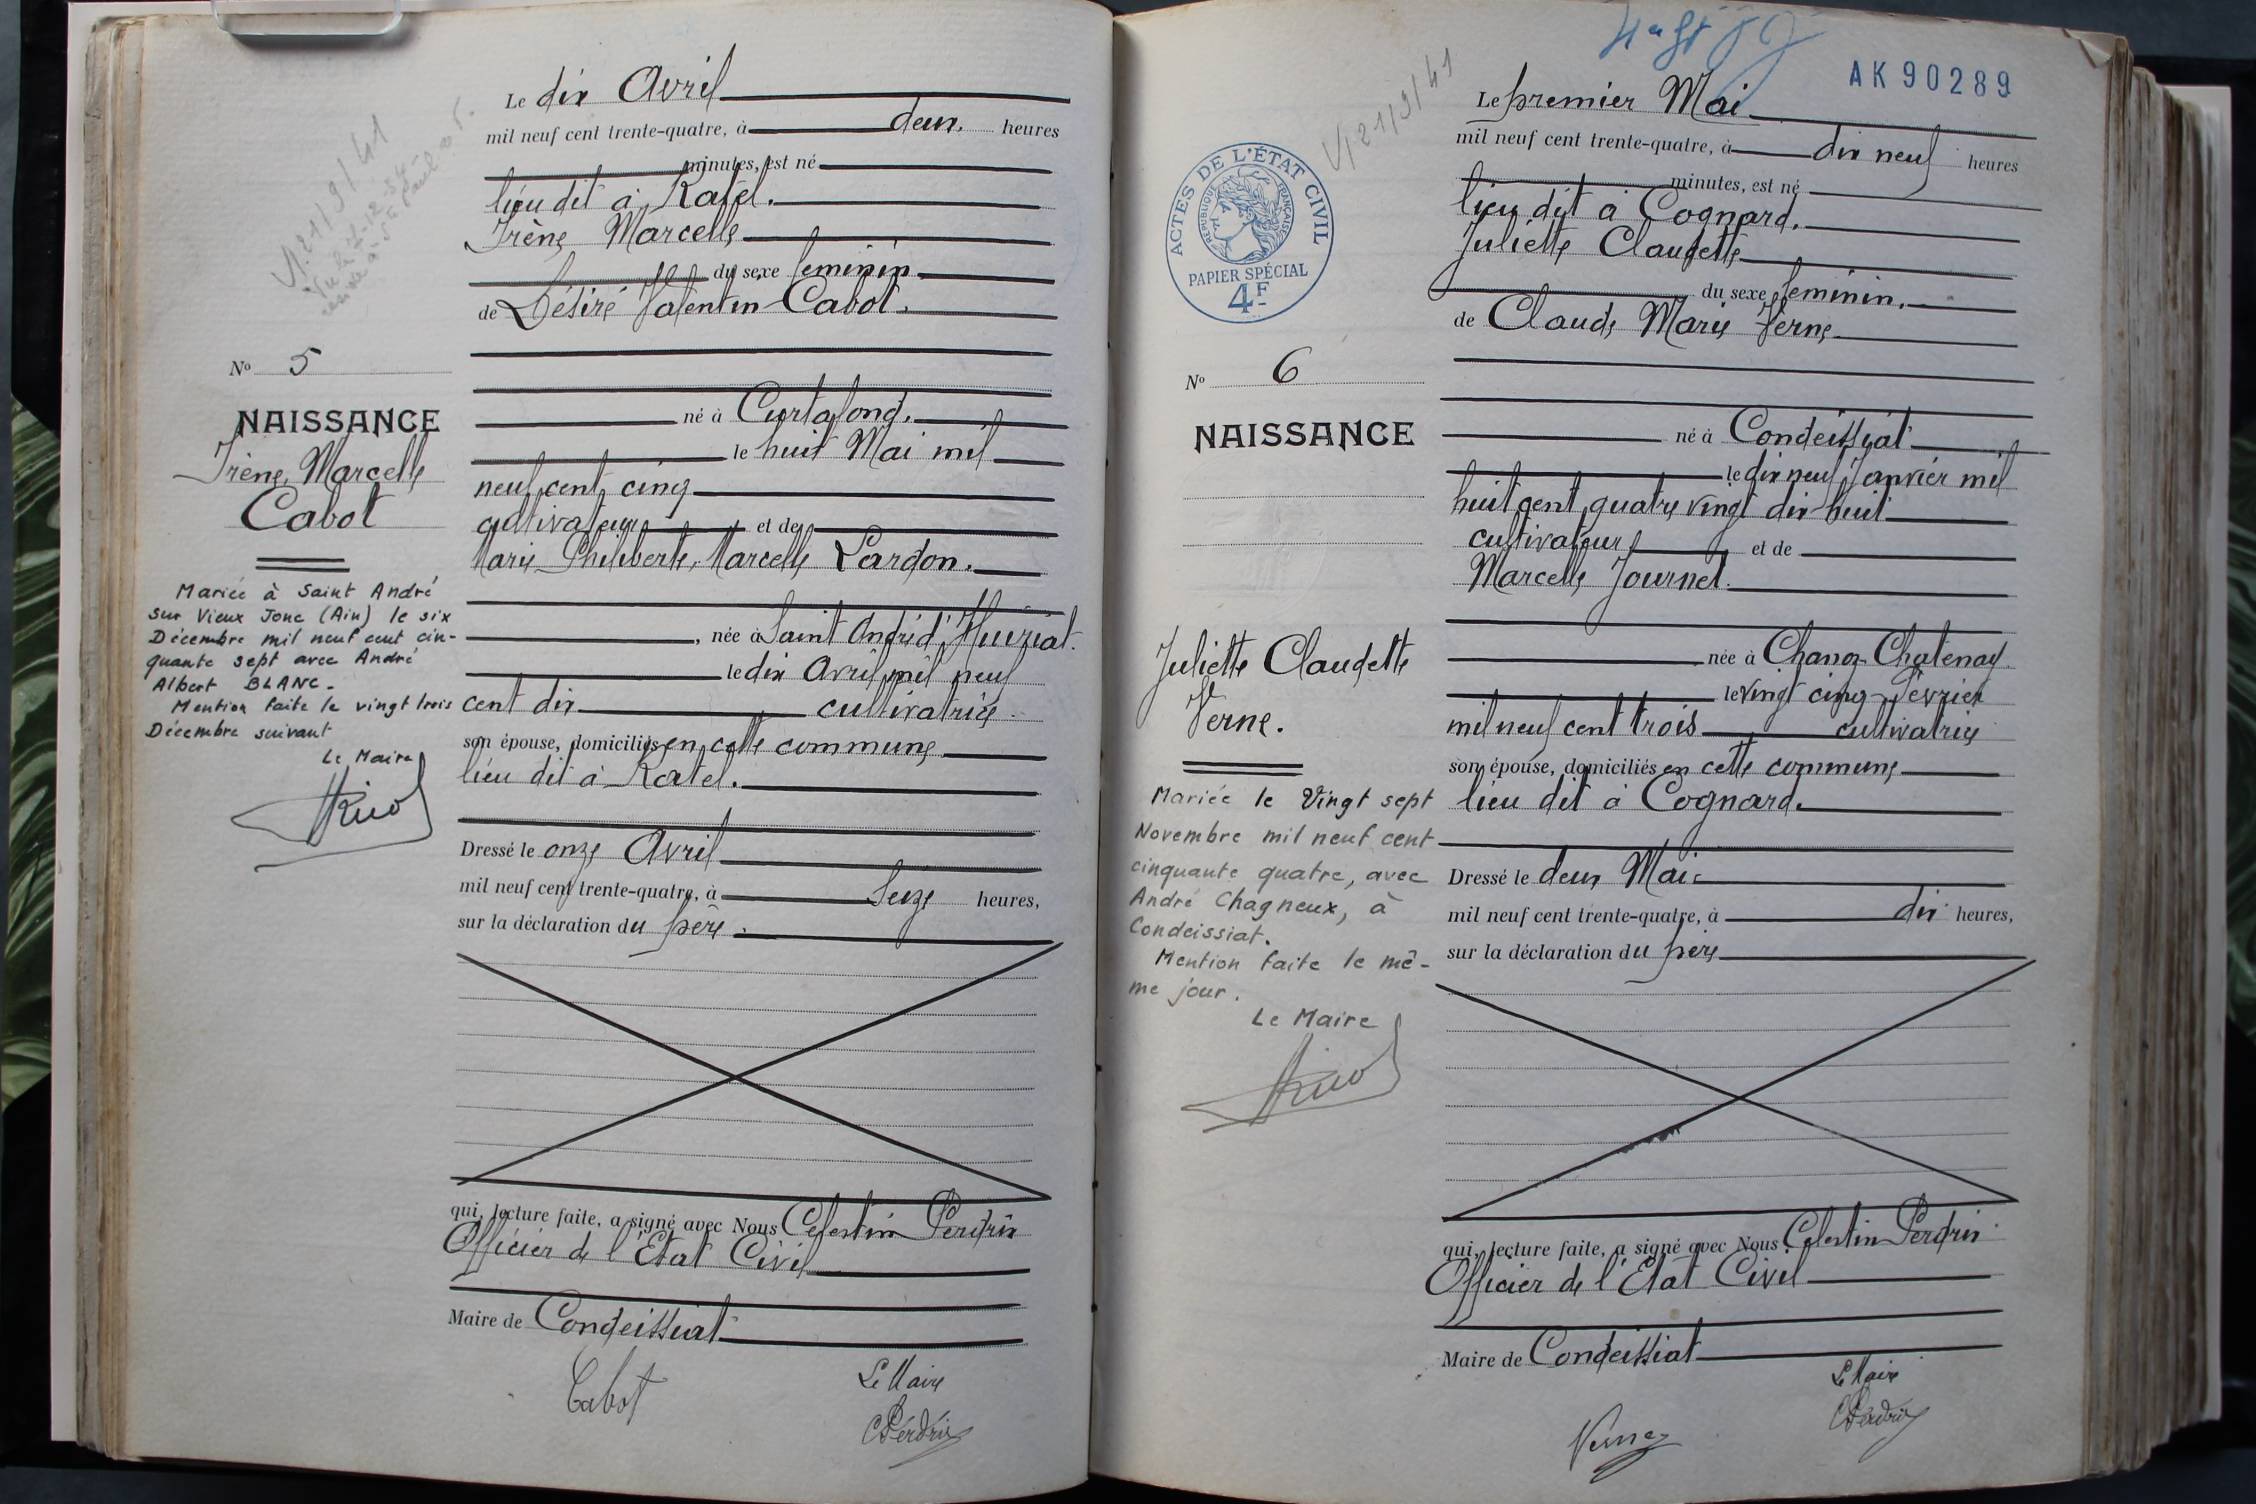 Le dix Avril
mil neuf cent trente-quatre, à deux heures
minutes, est né
lieu dit à Ratel.
Irène Marcelle
du sexe féminin
de Désiré Valentin Cabot.
né à Curtafond.
le huit Mai mil
neuf cent cinq
cultivateur et de
Marie Philiberte, Marcelle Lardon.
, née à Saint André d'Huiriat.
le dix Avril mil neuf
cent dix cultivatrice
son épouse, domiciliés en cette commune
lieu dit à Ratel.
Dressé le onze Avril
mil neuf cent trente-quatre, à Seize heures,
sur la déclaration du père.
qui, lecture faite, a signé avec Nous Célestin Perdrix
Officier de l'État Civil
Maire de Condeissiat
Cabot
Le Maire
C Perdrix
V. 21/9/41
N° 5
NAISSANCE
Irène, Marcelle
Cabot
Mariée à Saint André
sur Vieux Jonc (Ain) le six
Décembre mil neuf cent cin-
quante sept avec André
Albert BLANC.
Mention faite le vingt trois
Décembre suivant
Le Maire
AK90289
Le premier Mai
mil neuf cent trente-quatre, à dix neuf heures
minutes, est né
lieu dit à Cognard.
Juliette Claudette
du sexe féminin.
de Claude Marie Verne
né à Condeissiat
le dix neuf Janvier mil
huit cent quatre vingt dix huit
cultivateur et de
Marcelle Journet.
née à Chanoz Chatenay
le vingt cinq Février
mil neuf cent trois cultivatrice
son épouse, domiciliés en cette commune
lieu dit à Cognard.
Dressé le deux Mai
mil neuf cent trente-quatre, à dix heures,
sur la déclaration du père
qui, lecture faite, a signé avec Nous Célestin Perdrix
Officier de l'État Civil
Maire de Condeissiat
Verne
Le Maire
C Perdrix
V. 21/9/41
ACTES DE L'ÉTAT CIVIL
RÉPUBLIQUE FRANÇAISE
PAPIER SPÉCIAL
4F
N° 6
NAISSANCE
Juliette Claudette
Verne.
Mariée le Vingt sept
Novembre mil neuf cent
cinquante quatre, avec
André Chagneux, à
Condeissiat.
Mention faite le mê-
me jour.
Le Maire